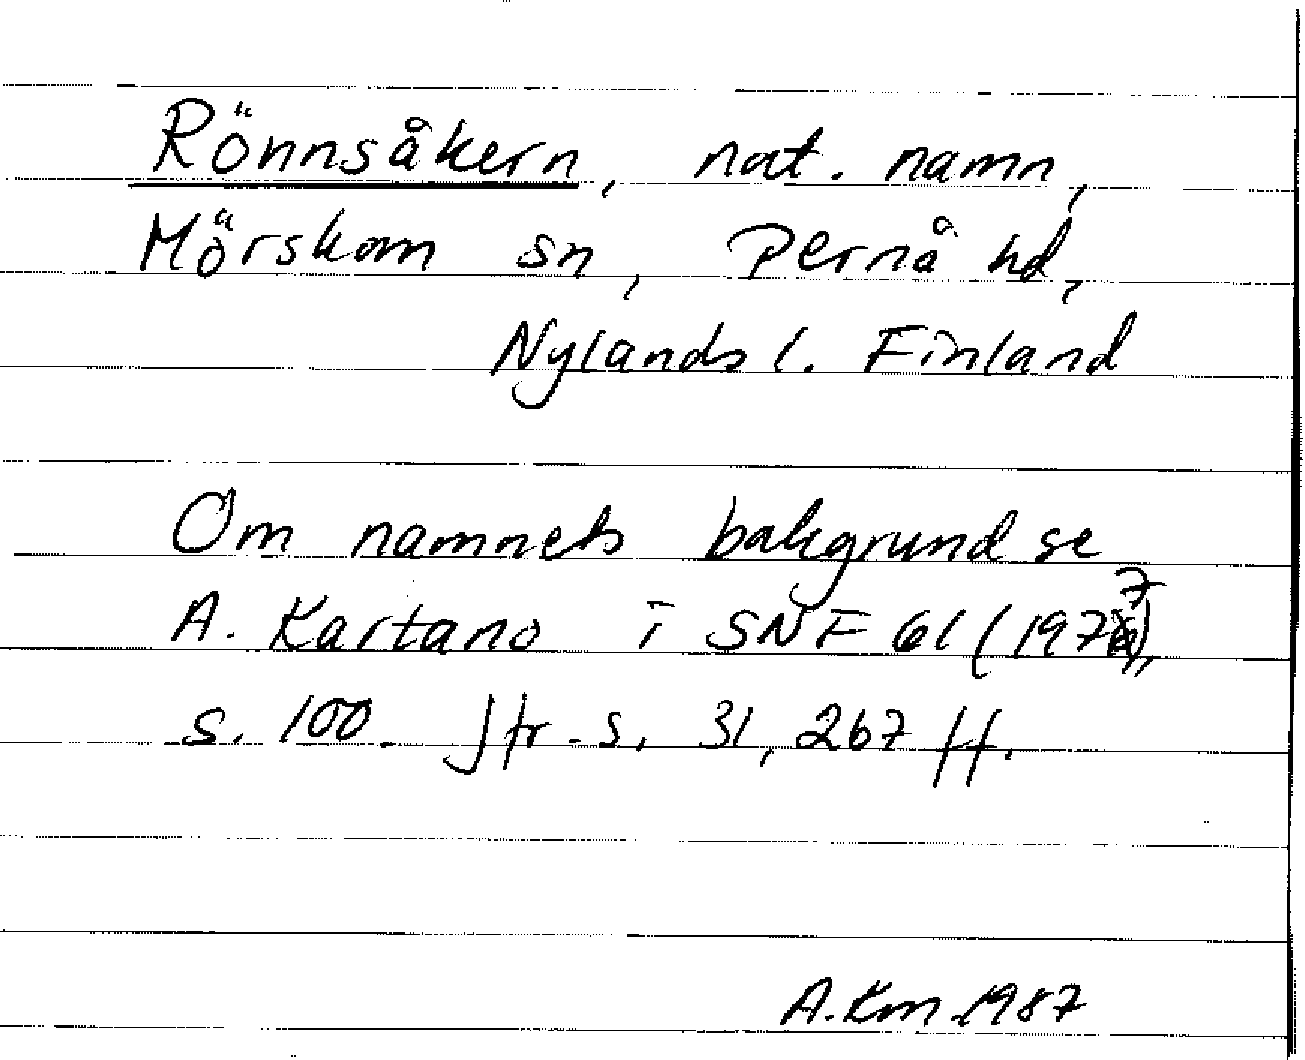 Rönnsåkern, nat. namn,
Mörskom sn, Pernå hd,
Nylands l. Finland
Om namnets bakgrund se
A. Kartano i SNF 61 (1977),
s. 100. Jfr s. 31, 267 ff.
A.Km. 1987